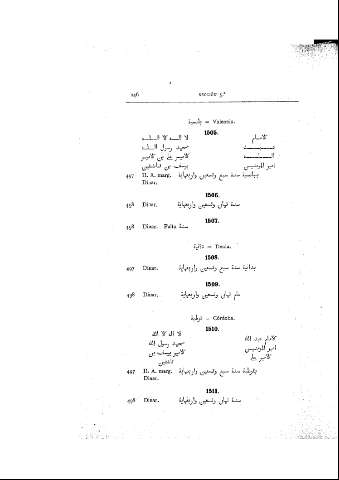 246 SECCIÓN 5.ª
بلنسية = Valencia.
1505.
كالامام لا اله الا الله
عبد محمد رسول الله
الله الامير علي بن الامير
امير المومنين يوسف بن تاشفين
497 II. A. marg. ببلنسية سنة سبع وتسعين واربعماية
Dinar.
1506.
498 Dinar. سنة ثمان وتسعين واربعماية
1507.
498 Dinar. Falta سنة
دانية = Denia.
1508.
497 Dinar. بدانية سنة سبع وتسعين واربعماية
1509.
498 Dinar. عام ثمان وتسعين واربعماية
قرطبة = Córdoba.
1510.
لا اله الا الله
الامام عبد الله محمد رسول الله
امير المومنين الامير يوسف بن
الامير علي تاشفين
497 II. A. marg. بقرطبة سنة سبع وتسعين واربعماية
Dinar.
1511.
498 Dinar. سنة ثمان وتسعين واربعماية